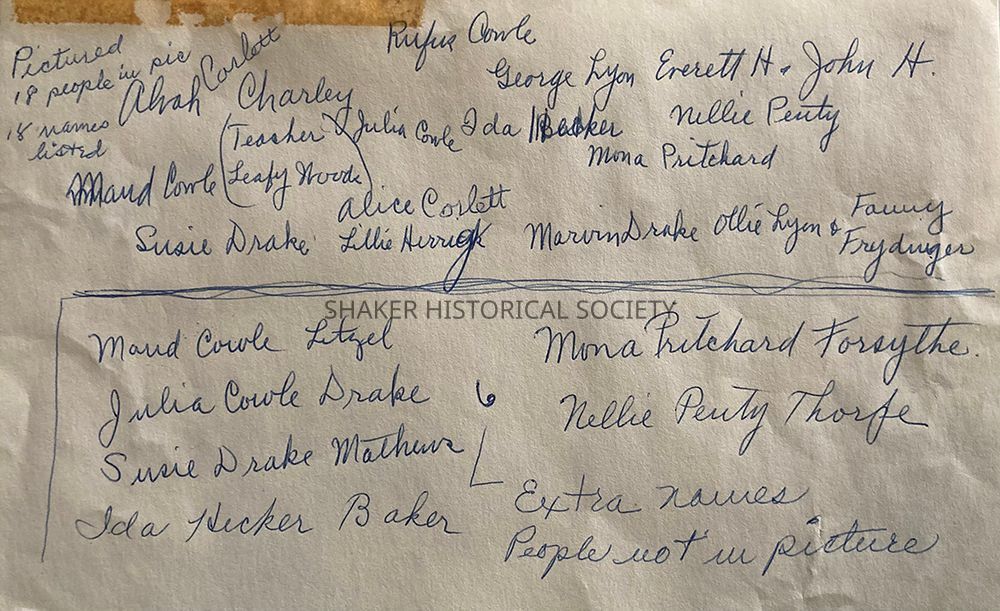 Pictured
18 people in pic
18 names
listed
Rufus Cowle
Alvah Corlett Charley George Lyon Everett H. John H.
(Teacher Leafy Woods) Julia Cowle Ida Nellie Penty
Mona Pritchard
Maud Cowle
Alice Corlett
Susie Drake Lillie Herrick Marvin Drake Ollie Lyon & Fanny
Frydinger
SHAKER HISTORICAL SOCIETY
Maud Cowle Litzel
Julia Cowle Drake
Susie Drake Mathews
Ida Hecker Baker
Mona Pritchard Forsythe.
Nellie Penty Thorpe
6
Extra names
People not in picture